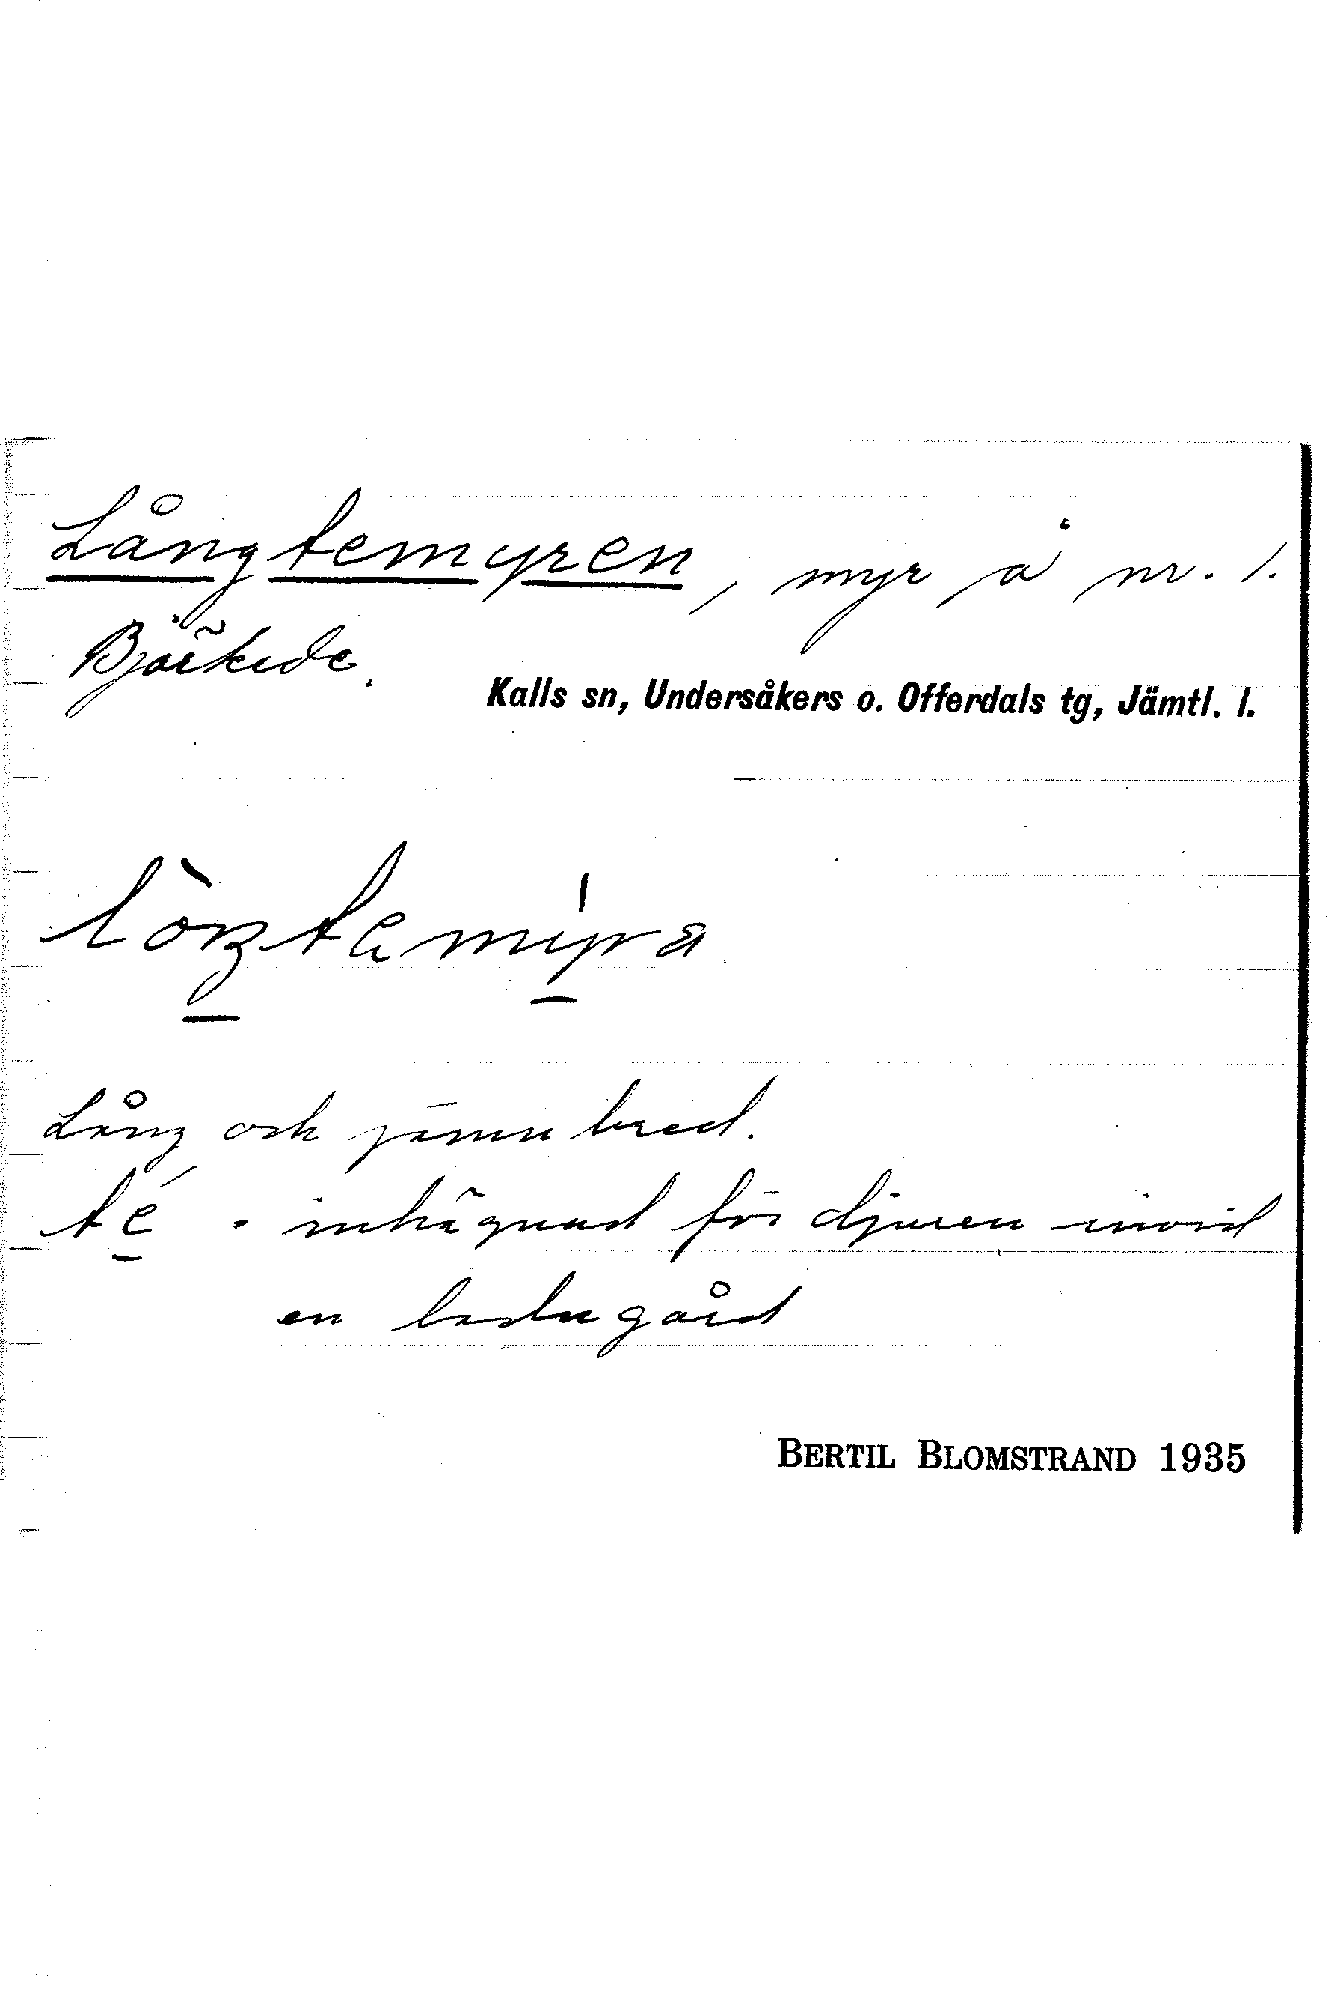 Långtemyren, myr å nr. 1.
Björkede.
Kalls sn, Undersåkers o. Offerdals tg, Jämtl. l.
Lång och jämnbred.
té - inhägnad för djuren invid
en ladugård
BERTIL BLOMSTRAND 1935